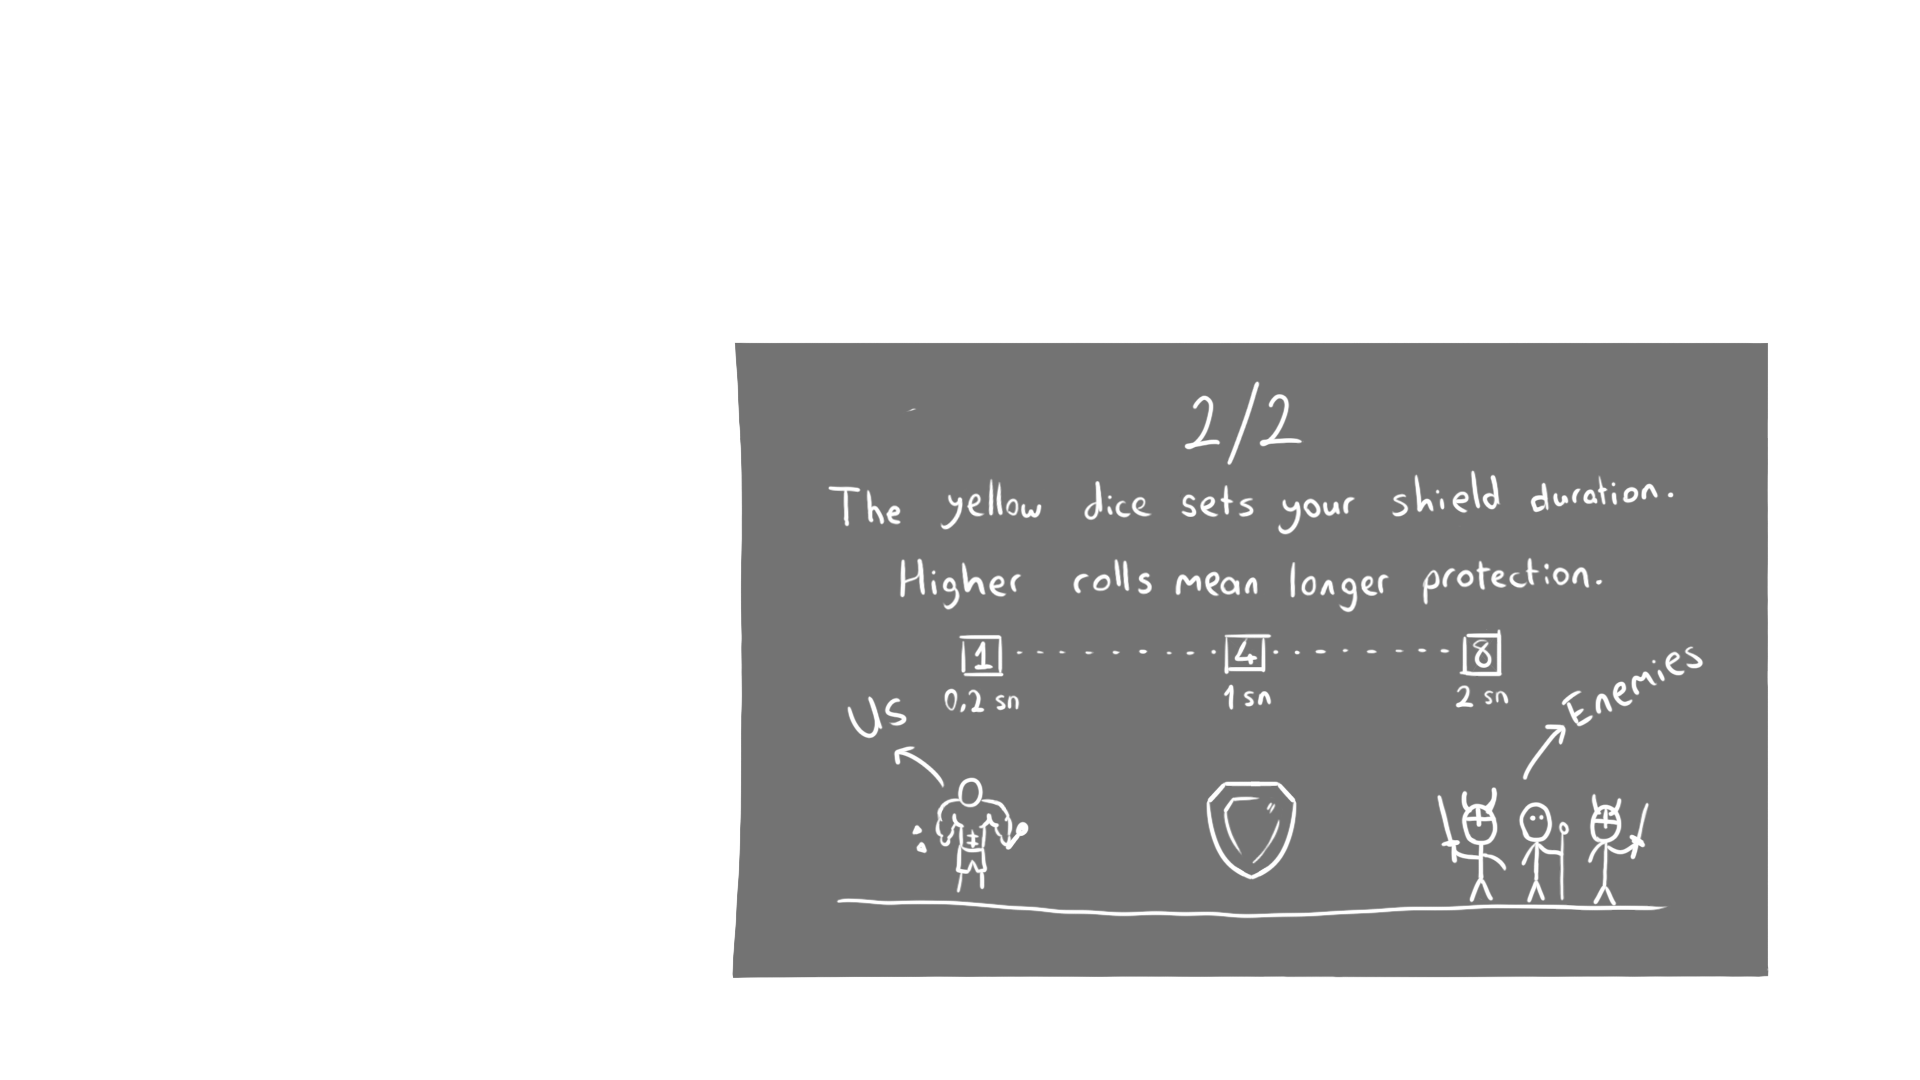 2/2
The yellow dice sets your shield duration.
Higher rolls mean longer protection.
1 4 8
0,2 sn 1 sn 2 sn
Us
Enemies